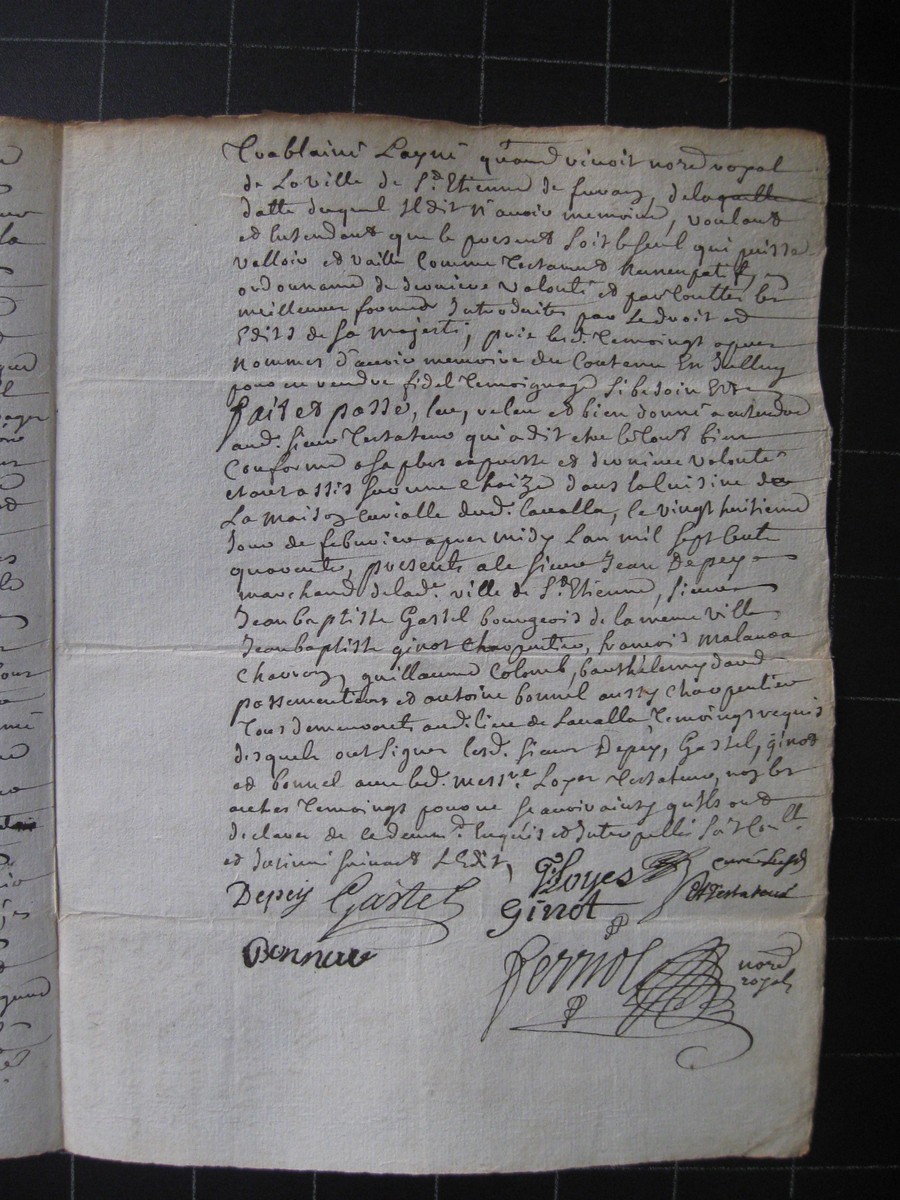 Trablaine Layné quand vivoit nore. royal
de La ville de St. Etienne de furan, de laquelle
datte duquel Il dit N'avoir memoire, voulant
et Entendant que le present Soit le Seul qui puisse
valloir et vaille Comme Testament Nuncupatif,
ordonnance de derniere volonté et par touttes les
meilleures formes Introduites par Le droit et
Edits de Sa majesté, prie les d. Temoings apres
Nommes d'avoir memoire du Contenu En Icelluy
pour en rendre fidel Temoignage Si besoin Est
fait et passé, leu, releu et bien donné a entendre
aud. Sieur Testateur qui a dit etre le tout bien
Conforme a sa plus expresse et derniere volonté
etant assis sur une Chaize dans la Cuisine de
La maison Curialle dud. Lavalla, le vingt huitieme
Jour de febvrier apres midy Lan mil sept cent
quarente, presents a le Sieur Jean Depey
marchand de lade. ville de St. Etienne, Sieur
Jean baptiste Gastel bourgeois de la meme ville
Jean baptiste ginot Charpentier, francois
guillaume Colomb, barthelemy david
passementiers et antoine bonnel aussy Charpentier
Tous demeurants aud. lieu de Lavalla Temoings requis
desquels ont Signer lesd. Sieurs Depey, Gastel, ginot
et bonnel avec led. messre. Loyer Testateur, non les
autres Temoings pour ne Scavoir ainsy qu'ils ont
declarer de ce deument Enquis et Interpellé Soit Conllé.
et Insinué Suivant L'Edit,
Depey Gastel Loyes curé
Ginot et Testateur
Bonnel
ferriol nore. royal